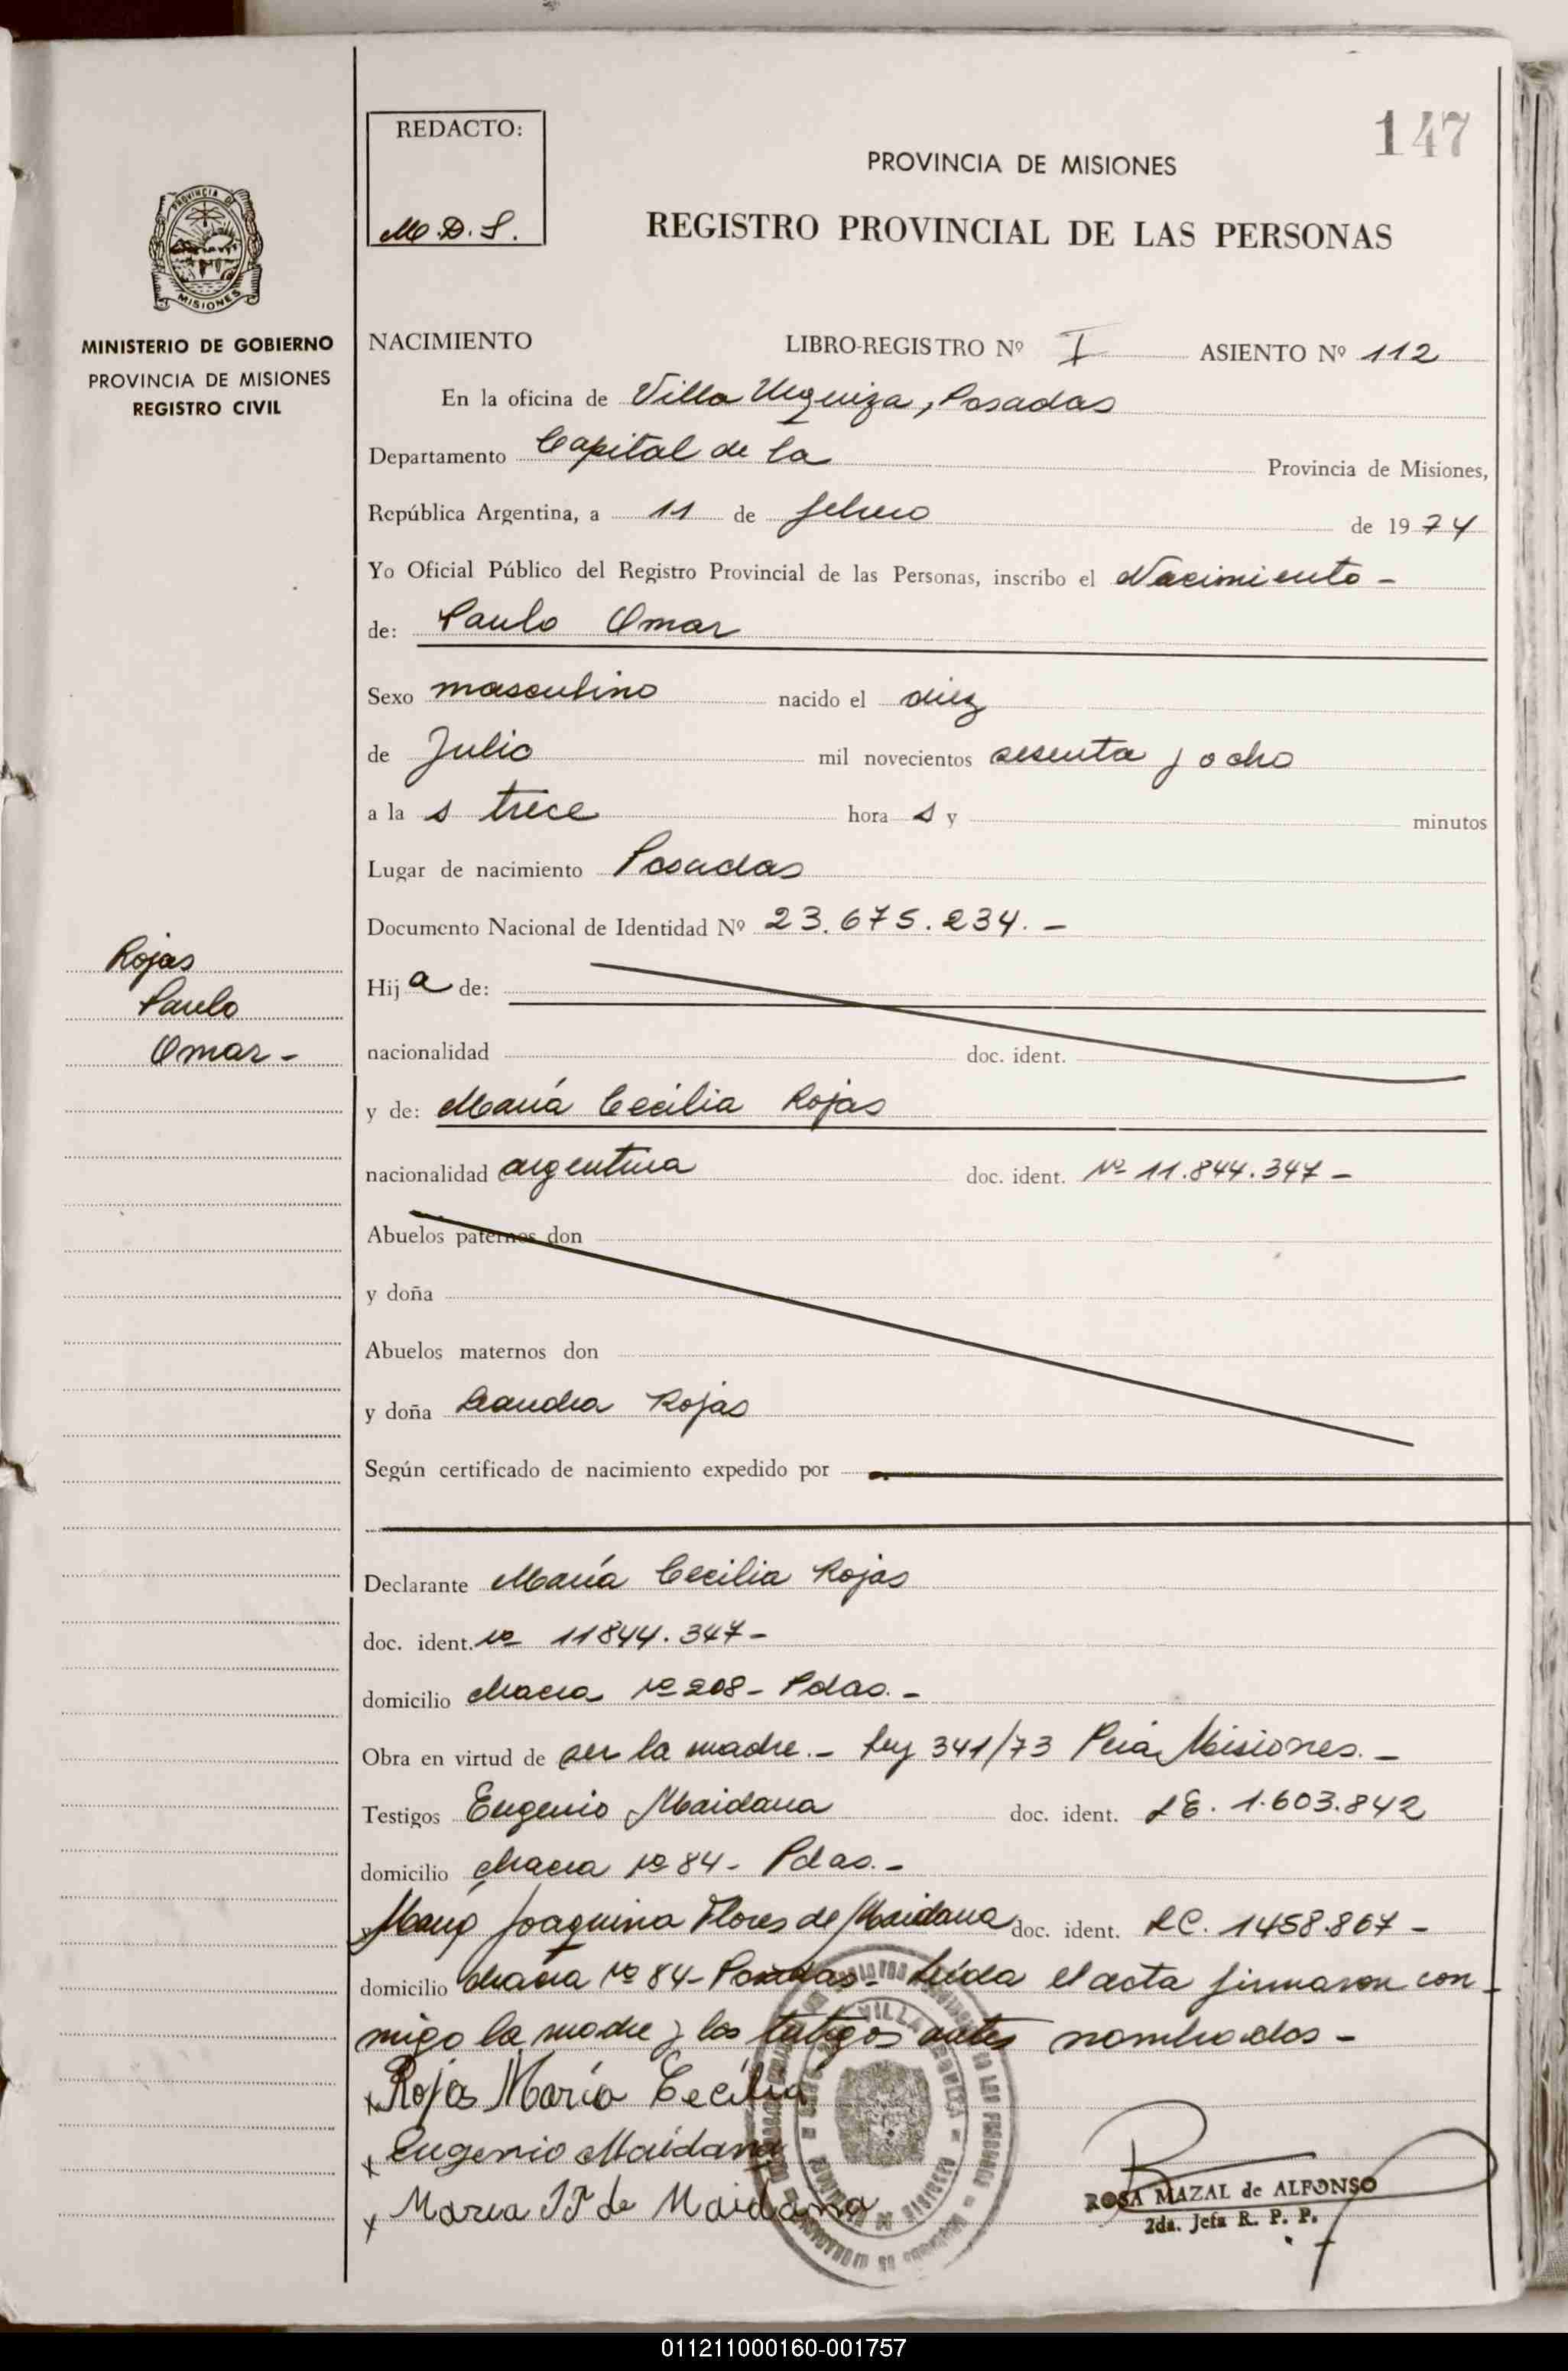 147
REDACTO:
M.D.S.
PROVINCIA DE MISIONES
REGISTRO PROVINCIAL DE LAS PERSONAS
PROVINCIA DE
MISIONES
MINISTERIO DE GOBIERNO
PROVINCIA DE MISIONES
REGISTRO CIVIL
NACIMIENTO LIBRO-REGISTRO Nº I ASIENTO Nº 112
En la oficina de Villa Urquiza, Posadas
Departamento Capital de la Provincia de Misiones,
República Argentina, a 11 de febrero de 1974
Yo Oficial Público del Registro Provincial de las Personas, inscribo el Nacimiento -
de: Paulo Omar
Sexo masculino nacido el diez
de Julio mil novecientos sesenta y ocho
a la s trece hora s y minutos
Lugar de nacimiento Posadas
Documento Nacional de Identidad Nº 23.675.234. -
Rojas
Paulo
Omar -
Hij a de:
nacionalidad doc. ident.
y de: María Cecilia Rojas
nacionalidad argentina doc. ident. Nº 11.844.347 -
Abuelos paternos don
y doña
Abuelos maternos don
y doña Leandra Rojas
Según certificado de nacimiento expedido por
Declarante María Cecilia Rojas
doc. ident. Nº 11844.347 -
domicilio chacra Nº 208 - Pdas. -
Obra en virtud de ser la madre. - Ley 341/73 Pcia. Misiones. -
Testigos Eugenio Maidana doc. ident. LE. 1.603.842
domicilio chacra Nº 84 - Pdas. -
y María Joaquina Flores de Maidana doc. ident. LC. 1458.867 -
domicilio chacra Nº 84 - Posadas - Leída el acta firmaron con-
migo la madre y los testigos antes nombrados -
x Rojas María Cecilia
x Eugenio Maidana
x Maria J F de Maidana
VILLA URQUIZA
ROSA MAZAL de ALFONSO
2da. Jefa R. P. P.
011211000160-001757